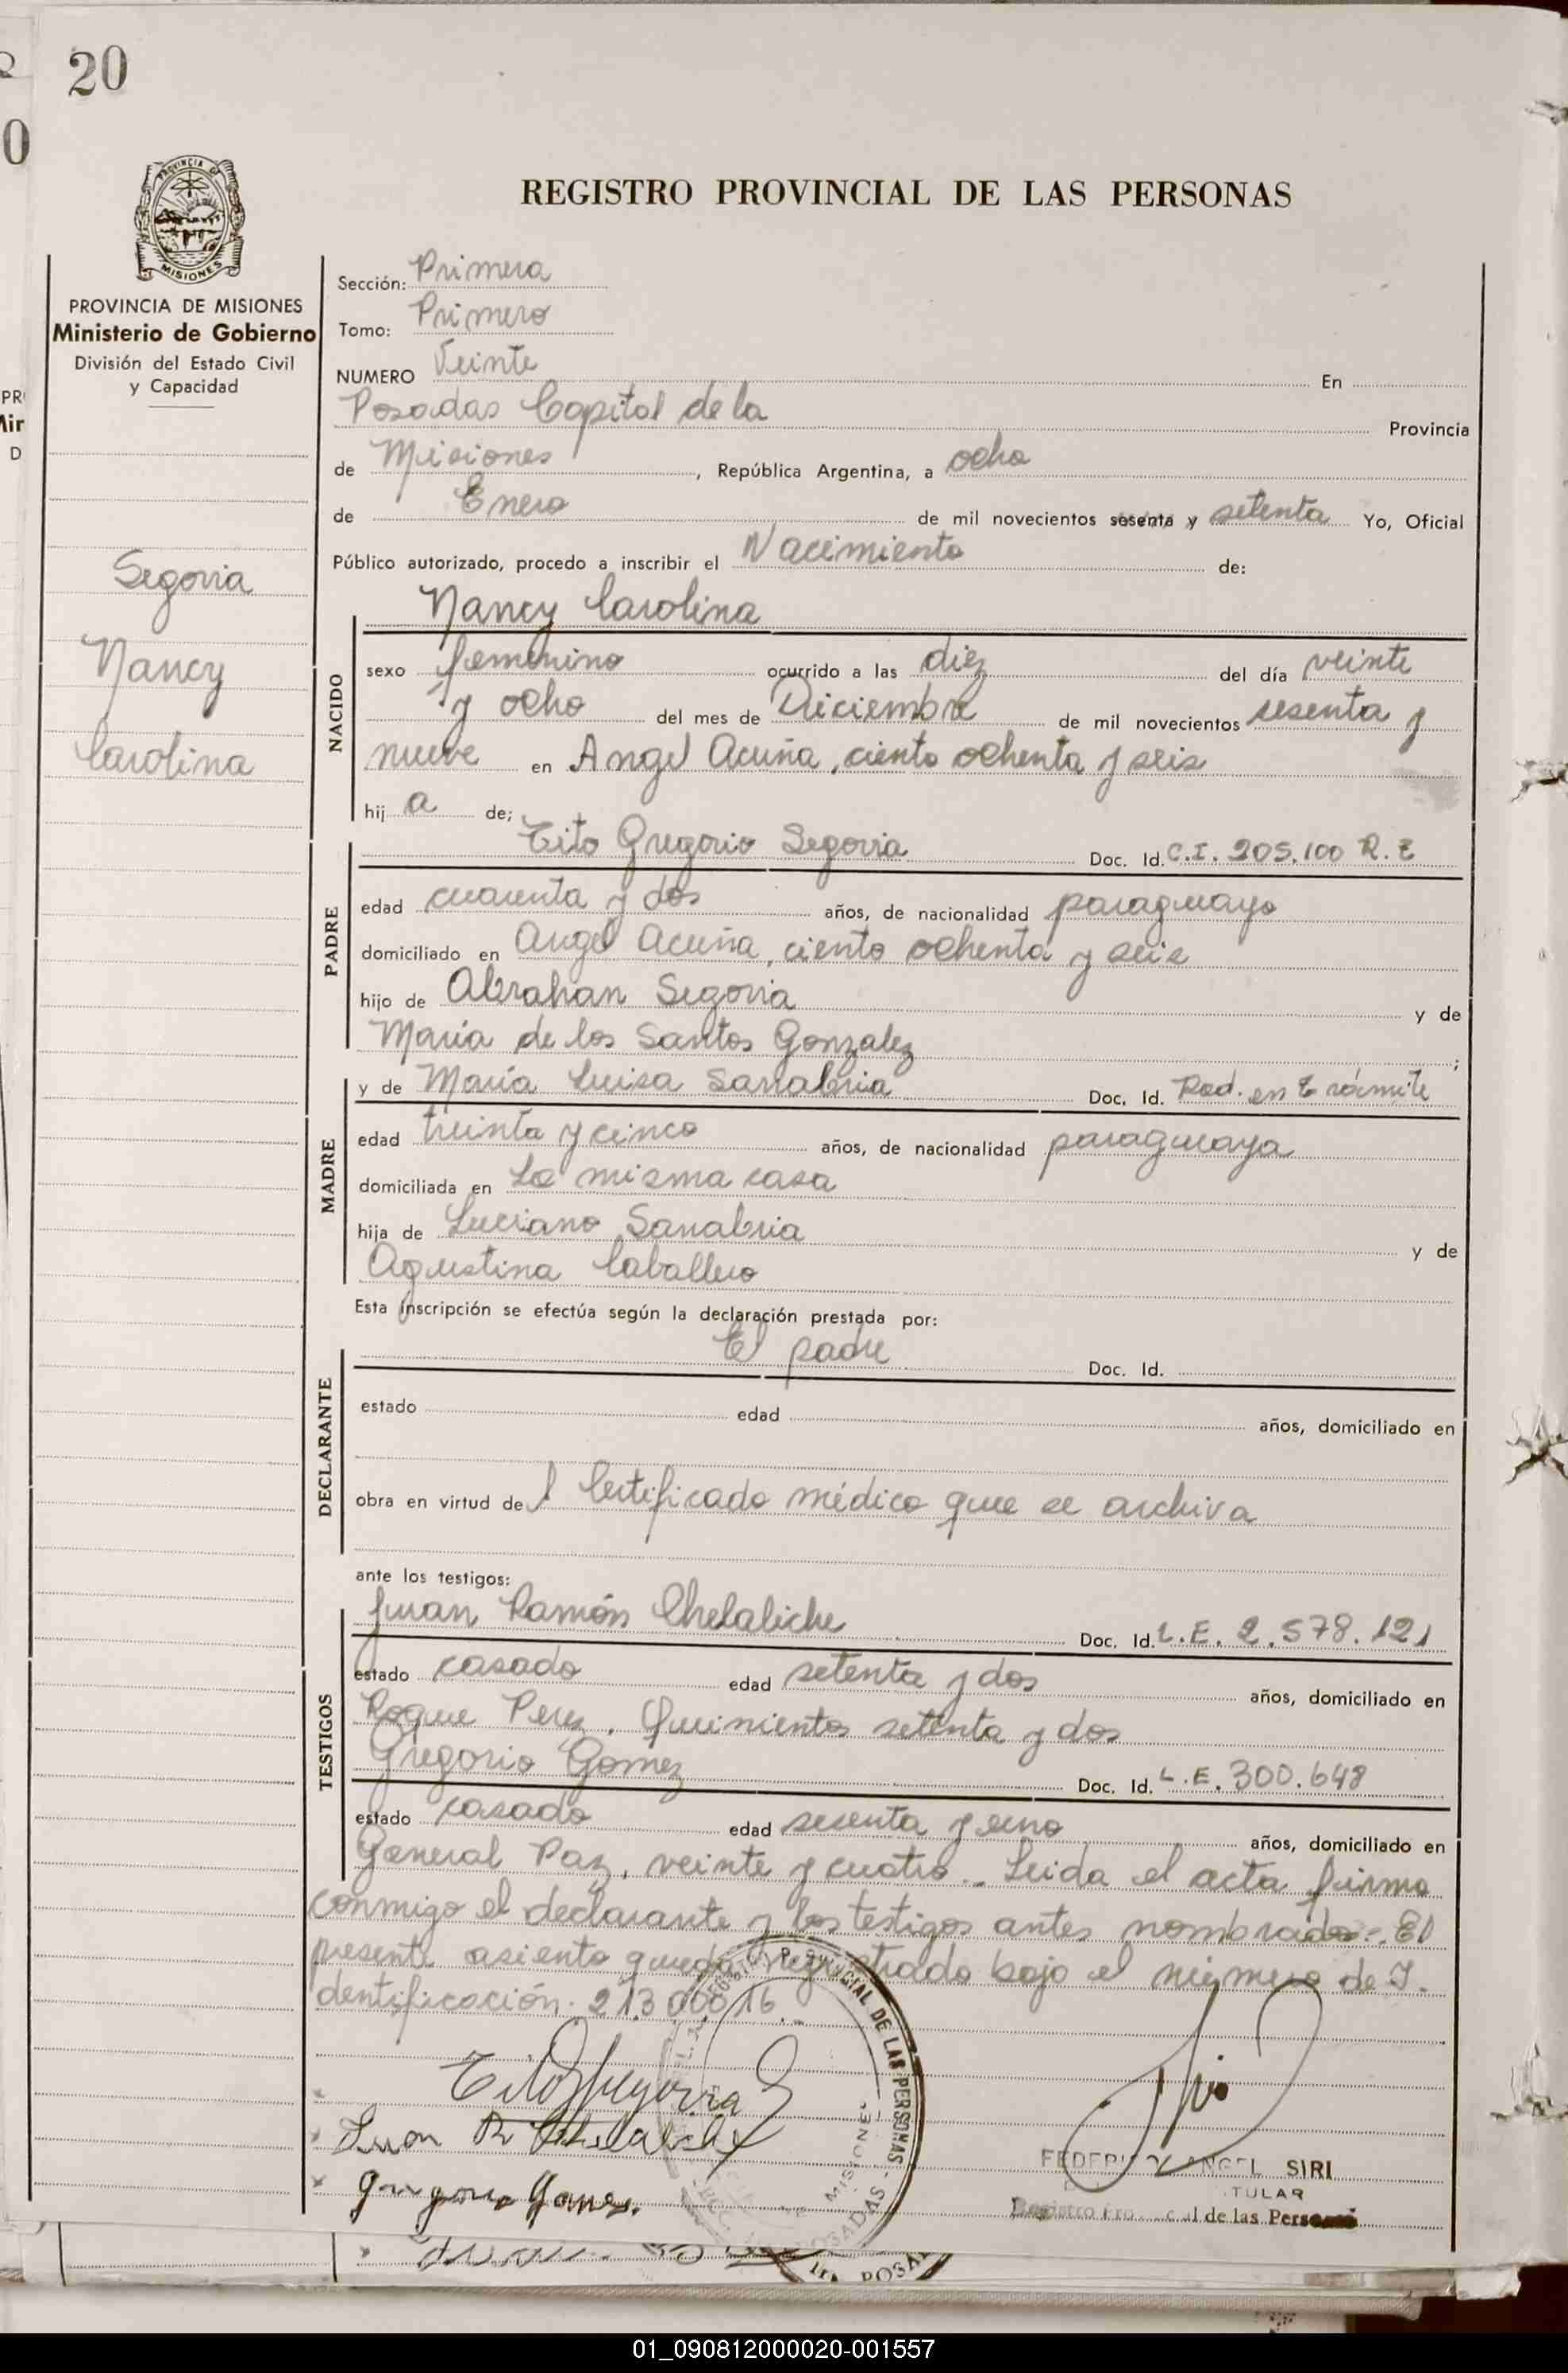 20
REGISTRO PROVINCIAL DE LAS PERSONAS
PROVINCIA DE MISIONES
Ministerio de Gobierno
División del Estado Civil
y Capacidad
Segovia
Nancy
Carolina
Sección: Primera
Tomo: Primero
NUMERO Veinte En
Posadas Capital de la Provincia
de Misiones, República Argentina, a ocho
de Enero de mil novecientos sesenta y setenta Yo, Oficial
Público autorizado, procedo a inscribir el Nacimiento de:
Nancy Carolina
NACIDO
sexo femenino ocurrido a las diez del día veinte
y ocho del mes de Diciembre de mil novecientos sesenta y
nueve en Angel Acuña, ciento ochenta y seis
hij a de;
PADRE
Tito Gregorio Segovia Doc. Id. C.I. 205.100 R.E
edad cuarenta y dos años, de nacionalidad paraguayo
domiciliado en Angel Acuña, ciento ochenta y seis
hijo de Abrahan Segovia y de
María de los Santos Gonzalez ;
MADRE
y de María Luisa Sanabria Doc. Id. Rad. en trámite
edad treinta y cinco años, de nacionalidad paraguaya
domiciliada en La misma casa
hija de Luciano Sanabria y de
Agustina Caballero
Esta inscripción se efectúa según la declaración prestada por:
DECLARANTE
El padre Doc. Id.
estado edad años, domiciliado en
obra en virtud del Certificado médico que se archiva
ante los testigos:
TESTIGOS
Juan Ramón Chelaliche Doc. Id. L.E. 2.578.121
estado casado edad setenta y dos años, domiciliado en
Roque Perez. Quinientos setenta y dos
Gregorio Gomez Doc. Id. L.E. 300.648
estado casado edad sesenta y uno años, domiciliado en
General Paz, veinte y cuatro.. Leida el acta firma
conmigo el declarante y los testigos antes nombrados. El
presente asiento queda registrado bajo el número de I.
dentificación. 213 00016..
Gregorio Gomez.
SIRI
TULAR
Registro Pro cial de las Personas
PROVINCIAL DE LAS PERSONAS
MISIONES
POSADAS
01_090812000020-001557